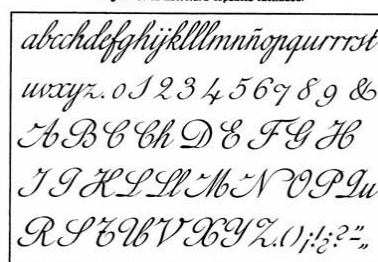 abcchdefghijklllmnñopqurrrst
uvxyz.01234567 8 9 &
A B C Ch D E F G H
I J K L Ll M N O P Qu
R S T U V X Y Z.()¡!¿?-„